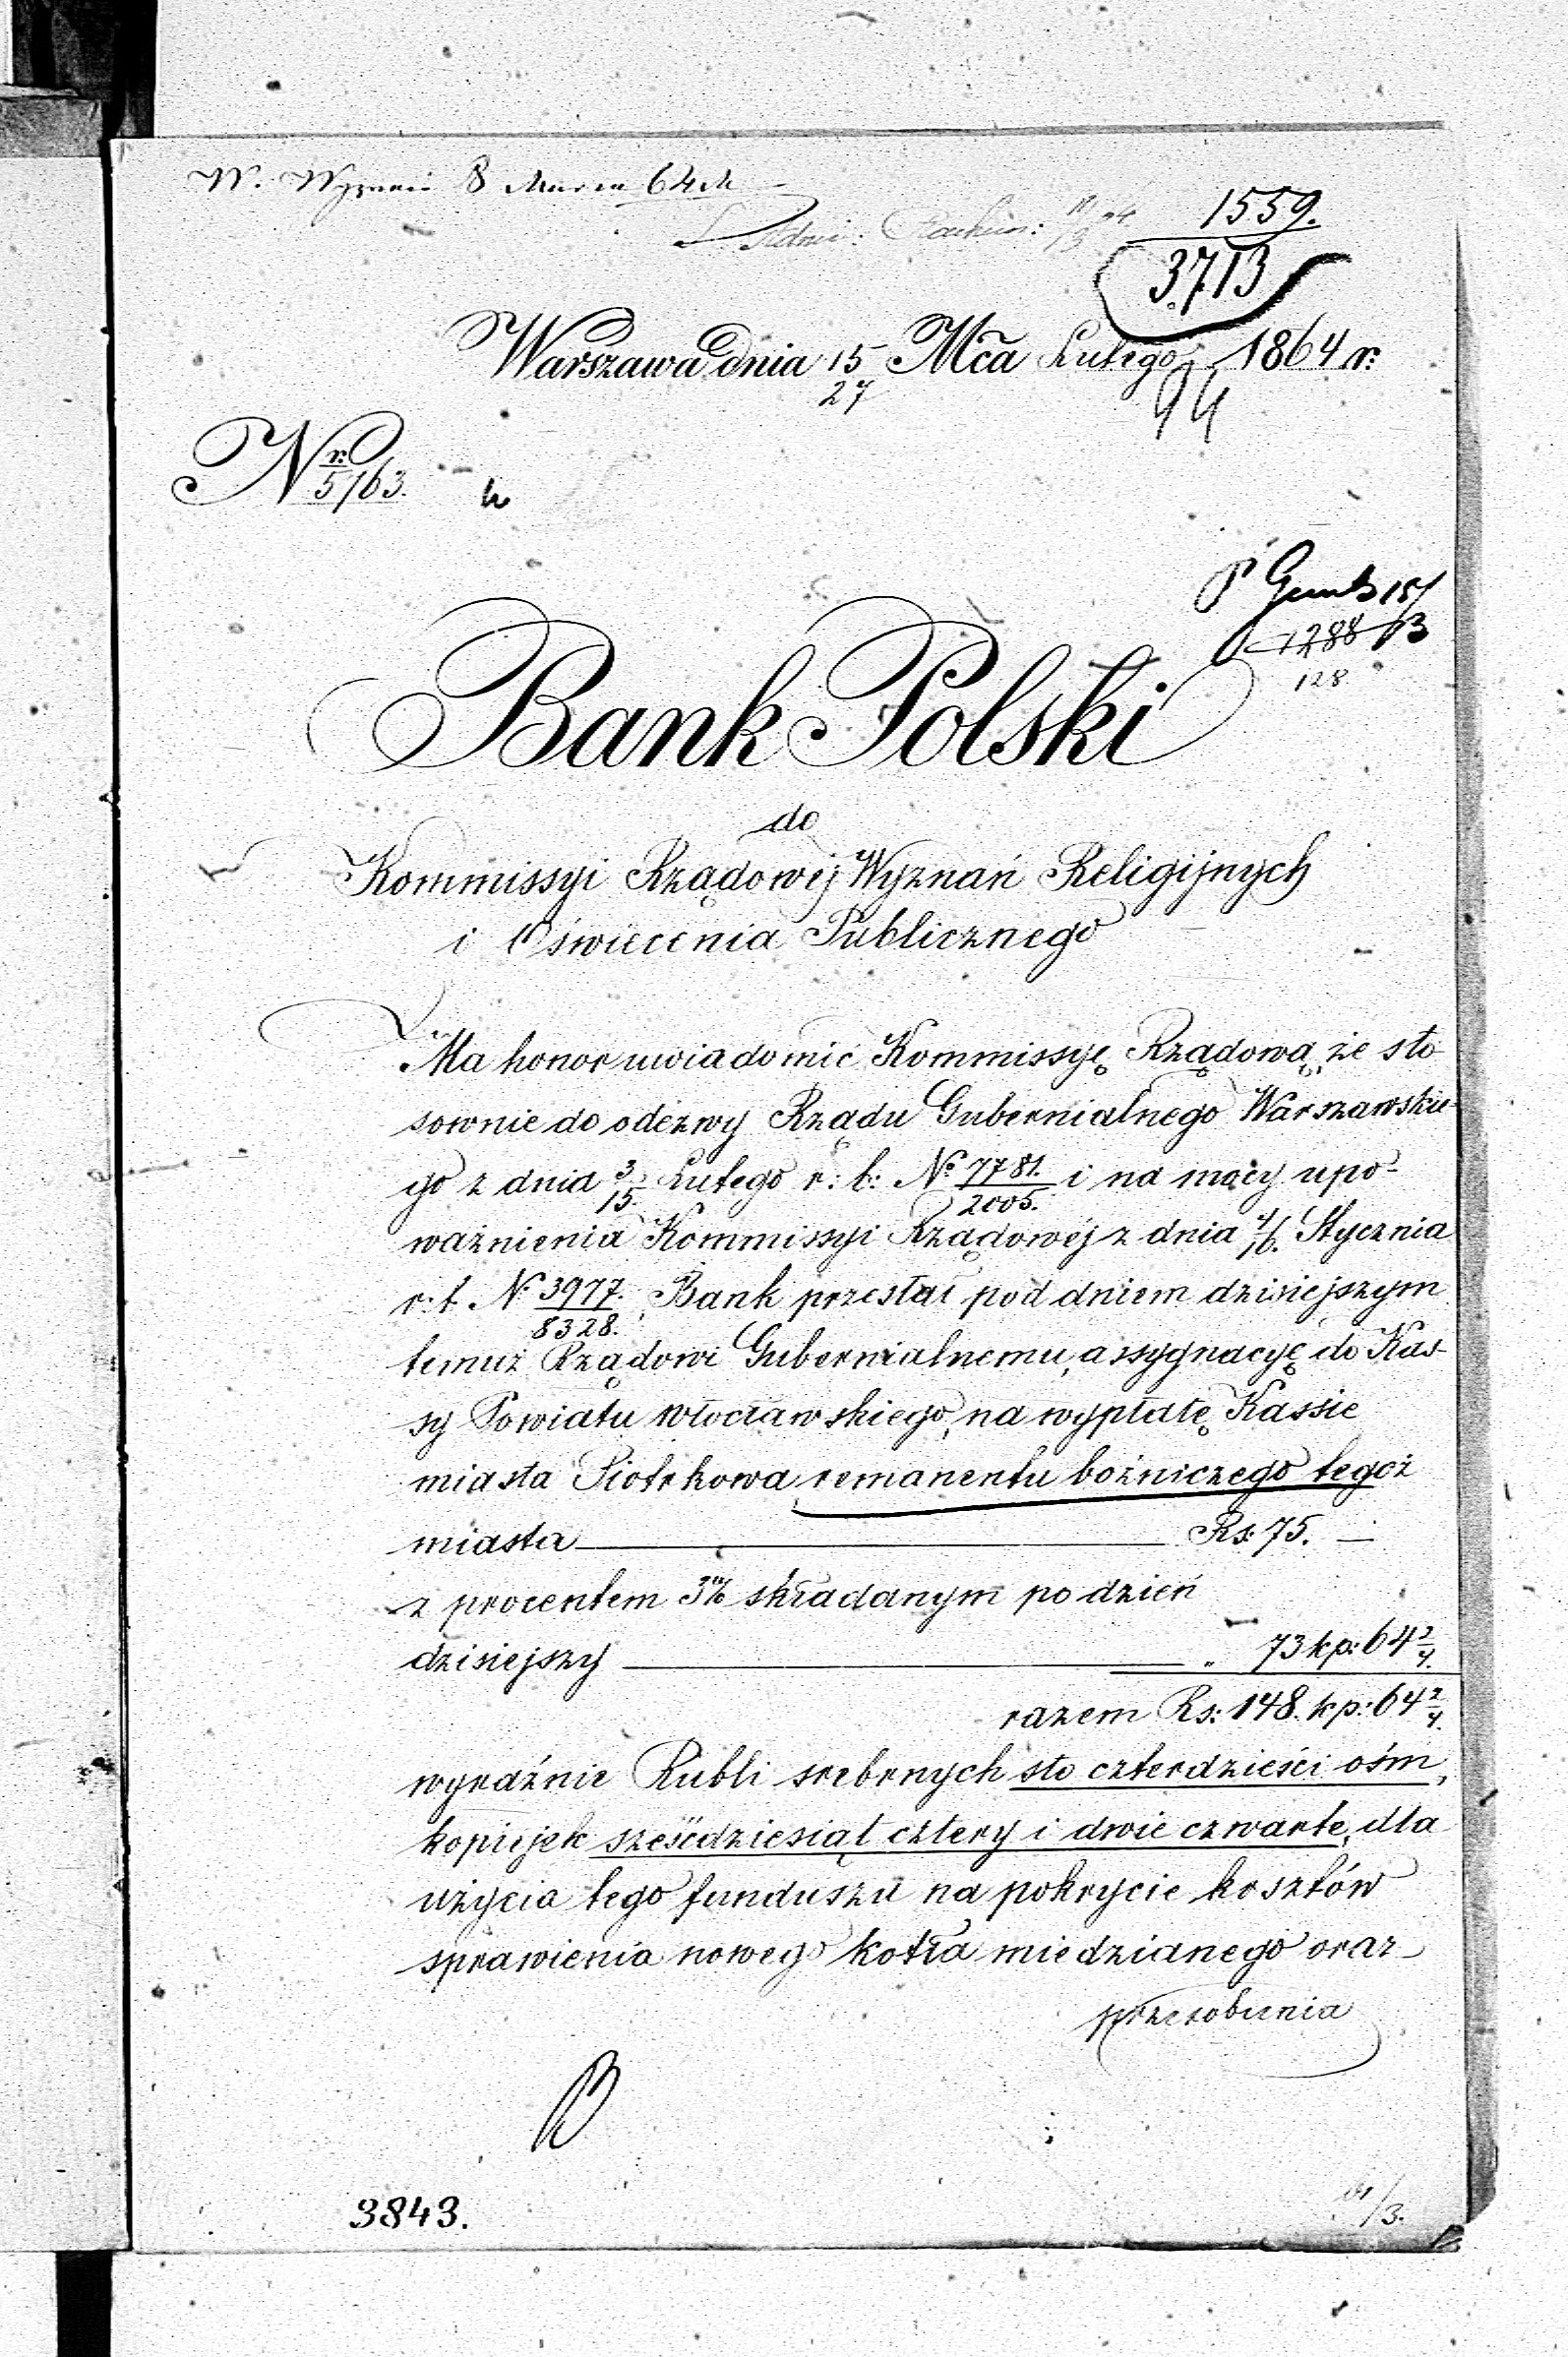 W. Wyznań 8 Marca 64
1559.
3713
Warszawa dnia 15/27 Mca Lutego 1864 r:
94
Nr. 5163.
P 15/3
1288
128
Bank Polski
do
Kommissyi Rządowéj Wyznań Religijnych
i Oświecenia Publicznego
Ma honor uwiadomić Kommissyę Rządową, że sto-
sownie do odezwy Rządu Gubernialnego Warszawskie-
go z dnia 3/15. Lutego r: b: No 7781./2005. i na mocy upo-
ważnienia Kommissyi Rządowéj z dnia 4/16. Stycznia
r: b. No 3977./8328., Bank przesłał pod dniem dzisiejszym
temuż Rządowi Gubernialnemu, assygnacyę do Kas-
sy Powiatu Włocławskiego, na wypłatę Kassie
miasta Piotrkowa, remanentu bożniczego tegoż
miasta Rs: 75. —
z procentem 3% składanym po dzień
dzisiejszy „ 73 kp: 64 2/4.
razem Rs: 148. kp: 64 2/4.
wyraźnie Rubli srebrnych sto czterdzieści ośm,
kopiejek sześćdziesiąt cztery i dwie czwarte, dla
użycia tego funduszu na pokrycie kosztów
sprawienia nowego kotła miedzianego oraz
przerobienia
3843.